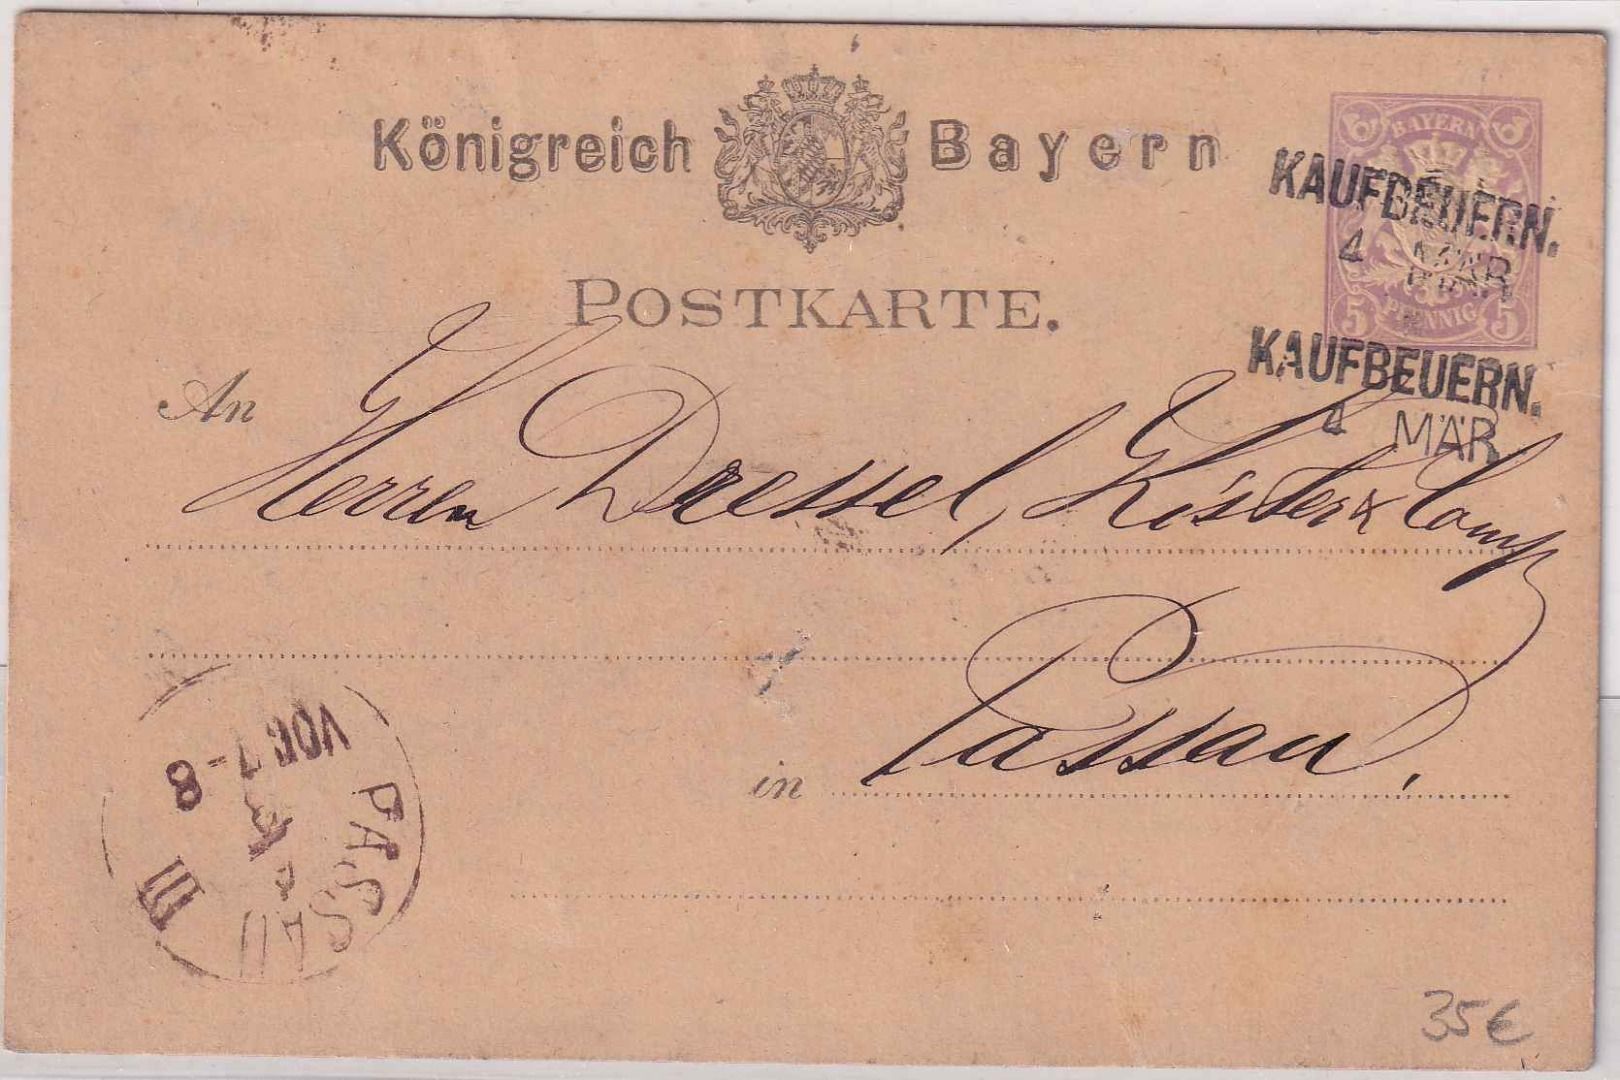 Königreich Bayern
BAYERN
5 PFENNIG 5
KAUFBEUERN.
4 MÄR
KAUFBEUERN.
4 MÄR
POSTKARTE.
An
Herren Dressel, Kister & Comp
in Passau.
PASSAU III
VOR 7-8
35€